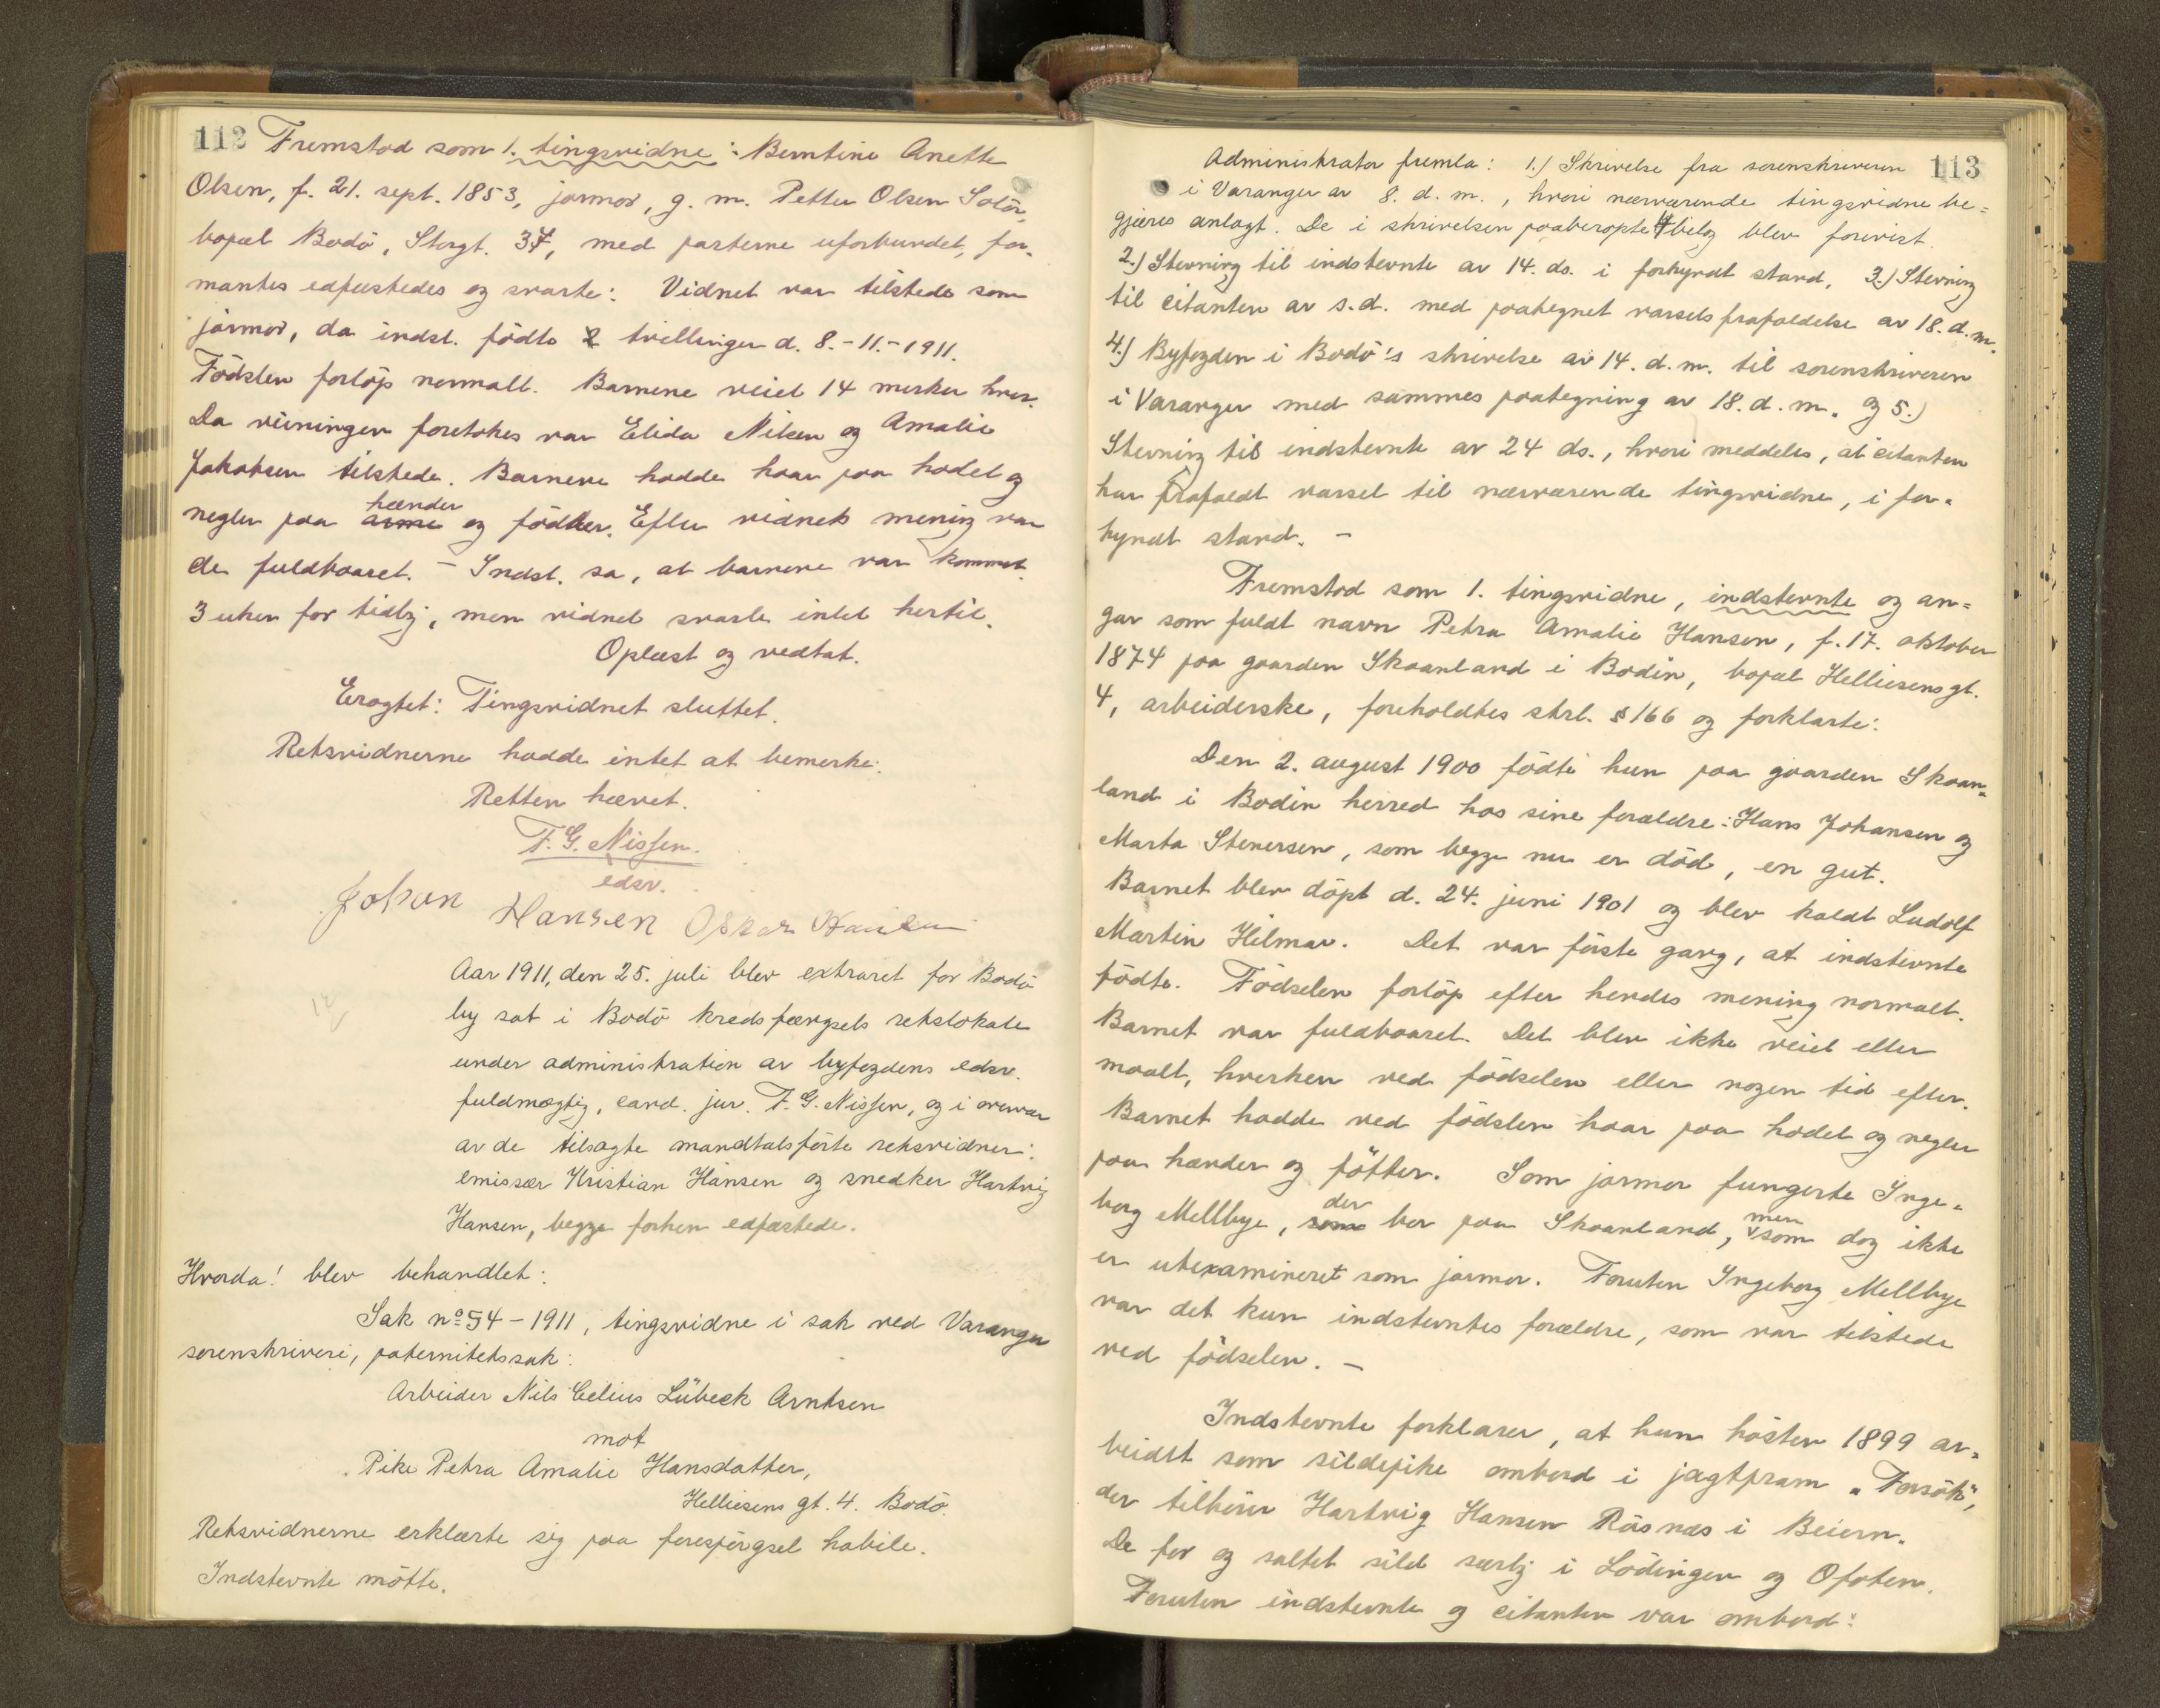 112
Fremstod som 1. tingsvidne: Berntine Anette
Olsen, f. 21. sept. 1853, jormor, g. m. Petter Olsen Solör,
bopæl Bodö, Storgt. 37, med parterne uforbundet, for-
mantes edfæstedes og svarte: Vidnet var tilstede som
jormor, da indst. födte 2 tvillinger d. 8.-11.-1911.
Födslen forlöp normalt. Barnene veiet 14 merker hver.
Da veiningen foretokes var Elida Nilsen og Amalie
Jakobsen tilstede. Barnene hadde haar paa hodet og
negler paa arme hænder og födder. Efter vidnets mening var
de fuldbaaret. – Indst. sa, at barnene var kommet
3 uker for tidlig, men vidnet svarte intet hertil.
Oplæst og vedtat.
Eragtet: Tingsvidnet sluttet.
Retsvidnerne hadde intet at bemerke.
Retten hævet.
F. G. Nissen.
edsv.
Johan Hansen Oskar Hansen
Aar 1911, den 25. juli blev extraret for Bodö
by sat i Bodö kredsfængsels retslokale
under administration av byfogdens edsv.
fuldmægtig, cand. jur. F. G. Nissen, og i overvær
av de tilsagte mandtalsförte retsvidner:
emissær Kristian Hansen og snedker Hartvig
Hansen, begge forhen edfæstede.
Hvorda! blev behandlet:
Sak no 54 – 1911, tingsvidne i sak ved Varanger
sorenskriveri, paternitetssak:
Arbeider Nils Celius Lübeck Arntsen
mot
Pike Petra Amalie Hansdatter,
Helliesens gt. 4. Bodö.
Retsvidnerne erklærte sig paa forespörgsel habile.
Indstevnte mötte.
113
Administrator fremla: 1.) Skrivelse fra sorenskriveren
i Varanger av 8. d. m., hvori nærværende tingsvidne be=
gjæres anlagt. De i skrivelsen paaberopte 4 bilag blev forevist.
2.) Stevning til indstevnte av 14. ds. i forkyndt stand, 3.) Stevning
til citanten av s.d. med paategnet varselsfrafaldelse av 18. d. m.
4.) Byfogden i Bodö's skrivelse av 14. d. m. til sorenskriveren
i Varanger med sammes paategning av 18. d. m. og 5.)
Stevning til indstevnte av 24 ds., hvori meddeles, at citanten
har frafaldt varsel til nærværende tingsvidne, i for-
kyndt stand. –
Fremstod som 1. tingsvidne, indstevnte og an=
gav som fuldt navn Petra Amalie Hansen, f. 17. oktober
1874 paa gaarden Skaanland i Bodin, bopæl Helliesens gt.
4, arbeiderske, foreholdtes strl. § 166 og forklarte:
Den 2. august 1900 födte hun paa gaarden Skaan-
land i Bodin herred hos sine forældre: Hans Johansen og
Marta Stenersen, som begge nu er död, en gut.
Barnet blev döpt d. 24. juni 1901 og blev kaldt Ludolf
Martin Hilmar. Det var förste gang, at indstevnte
födte. Födselen forlöp efter hendes mening normalt.
Barnet var fuldbaaret. Det blev ikke veiet eller
maalt, hverken ved födselen eller nogen tid efter.
Barnet hadde ved födslen haar paa hodet og negler
paa hænder og fötter. Som jormor fungerte Inge-
borg Mellbye, som der bor paa Skaanland, men som dog ikke
er utexamineret som jormor. Foruten Ingeborg Mellbye
var det kun indstevntes forældre, som var tilstede
ved födselen. –
Indstevnte forklarer, at hun hösten 1899 ar-
beidet som sildepike ombord i jagtpram "Forsök",
der tilhörer Hartvig Hansen Rösnæs i Beiern.
De for og saltet sild særlig i Lödingen og Ofoten.
Foruten indstevnte og citanten var ombord: